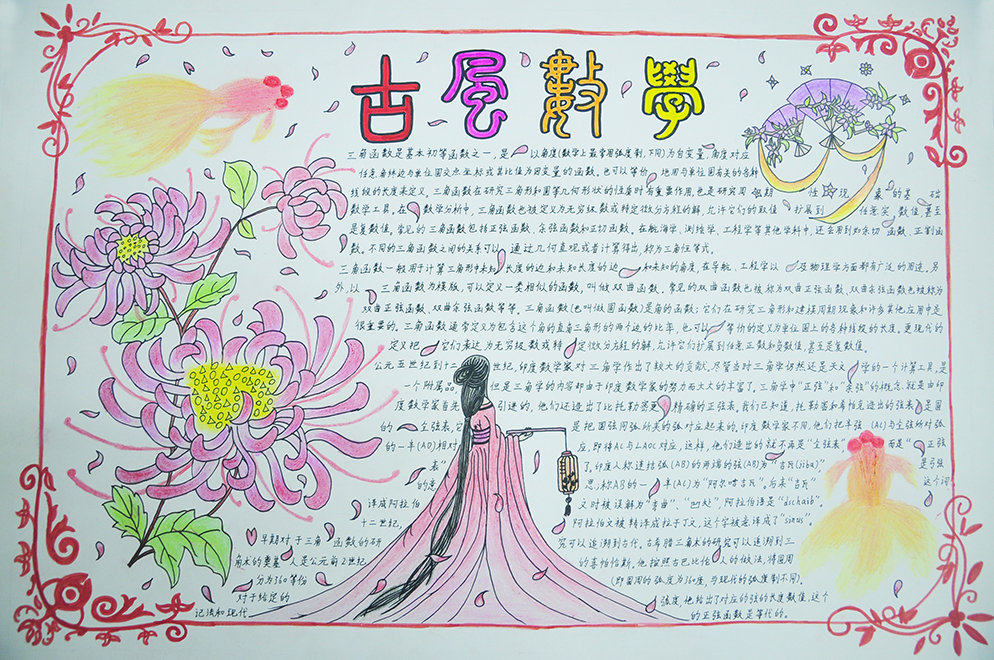 古風數學
三角函数是基本初等函数之一，是以角度(数学上最常用弧度制，下同)为自变量，角度对应
任意角终边与单位圆交点坐标或其比值为因变量的函数。也可以等价地用与单位圆有关的各种
线段的长度来定义。三角函数在研究三角形和圆等几何形状的性质时有重要作用，也是研究周期性现象的基础
数学工具。在数学分析中，三角函数也被定义为无穷级数或特定微分方程的解，允许它们的取值扩展到任意实数值，甚至
是复数值。常见的三角函数包括正弦函数、余弦函数和正切函数。在航海学、测绘学、工程学等其他学科中，还会用到如余切函数、正割函
数。不同的三角函数之间的关系可以通过几何直观或者计算得出，称为三角恒等式。
三角函数一般用于计算三角形中未知长度的边和未知的角度，在导航、工程学以及物理学方面都有广泛的用途。另
外，以三角函数为模版，可以定义一类相似的函数，叫做双曲函数。常见的双曲函数也被称为双曲正弦函数、双曲余弦函数也被称为
双曲正弦函数、双曲余弦函数等等。三角函数(也叫做圆函数)是角的函数；它们在研究三角形和建模周期现象和许多其他应用中是
很重要的。三角函数通常定义为包含这个角的直角三角形的两个边的比率，也可以等价的定义为单位圆上的各种线段的长度。更现代的
定义把它们表达为无穷级数或特定微分方程的解，允许它们扩展到任意正数和负数值，甚至是复数值。
公元五世纪到十二世纪，印度数学家对三角学作出了较大的贡献。尽管当时三角学仍然还是天文学的一个计算工具，是
一个附属品，但是三角学的内容却由于印度数学家的努力而大大的丰富了。三角学中"正弦"和"余弦"的概念，就是由印
度数学家首先引进的，他们还造出了比托勒密更精确的正弦表。我们已知道，托勒密和希帕克造出的弦表是圆
的全弦表，它是把圆弧同弧所夹的弦对应起来的。印度数学家不同，他们把半弦(AC)与全弦的对弧
的一半(AD)相对应，即将AC与∠AOC对应，这样，他们造出的就不再是"全弦表"，而是"正弦
表"了。印度人称连结弧(AB)的两端的弦(AB)为"吉瓦(jiba)"，是弓弦
的意思，称AB的一半(AC)为"阿尔哈吉瓦"。后来"吉瓦"这个词
译成阿拉伯文时被误解为"弯曲"、"凹处"，阿拉伯语是"dschaib"。
十二世纪，阿拉伯文被转译成拉丁文，这个字被意译成了"sinus"。
早期对于三角函数的研究可以追溯到古代。古希腊三角术的研究可以追溯到三
角术的奠基人是公元前2世纪的喜帕恰斯。他按照古巴比伦人的做法，将圆周
分为360等份(即圆周的弧度为360度，与现代的弧度制不同)。
对于给定的弧度，他给出了对应的弦的长度数值，这个
记法和现代的正弦函数是等价的。